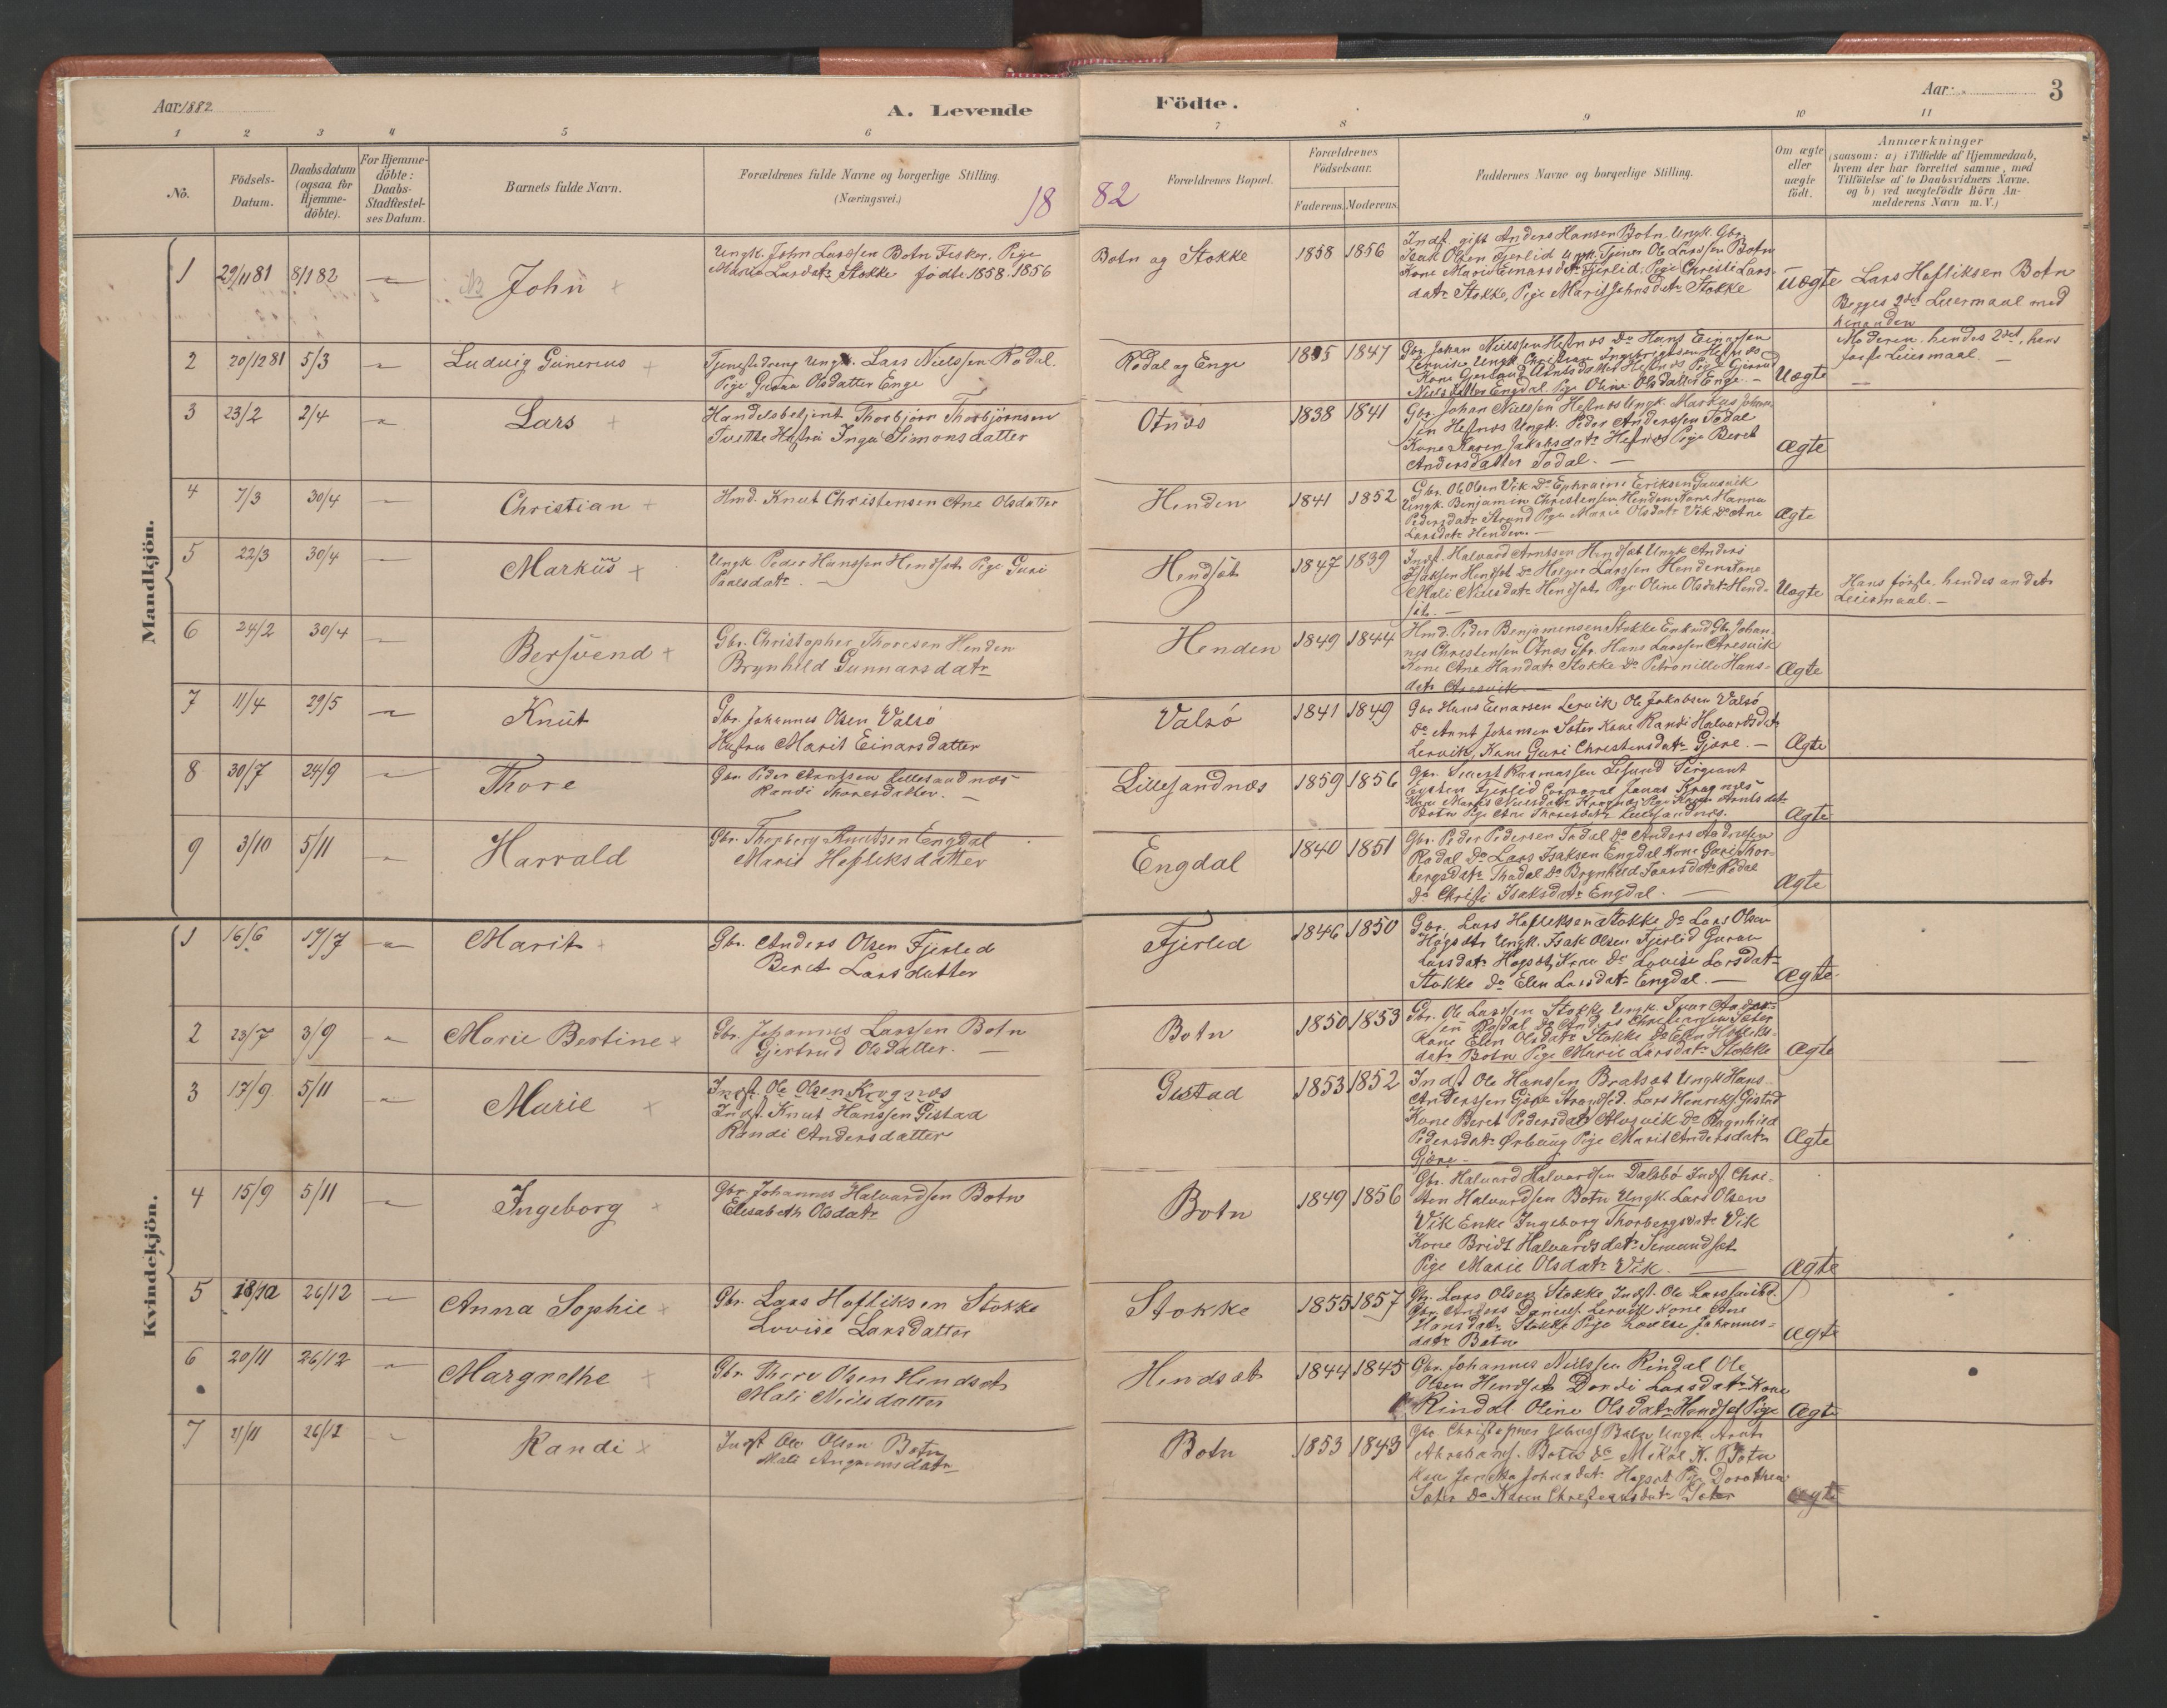 Aar 1882
A. Levende
Födte.
Aar
3
1 2 3 4 5 6 7 8 9 10 11
No.
Födsels-
Datum.
Daabsdatum
(ogsaa for
Hjemme-
döbte).
For Hjemme-
döbte:
Daabs-
Stadfæstel-
ses Datum.
Barnets fulde Navn.
Forældrenes fulde Navne og borgerlige Stilling.
(Næringsvei.)
18
82
Forældrenes Bopæl.
Forældrenes
Födselsaar.
Faderens. Moderens.
Faddernes Navne og borgerlige Stilling.
Om ægte
eller
uægte
födt.
Anmærkninger
(saasom: a) i Tilfælde af Hjemmedaab,
hvem der har forrettet samme, med
Tilföielse af to Daabsvidners Navne.
og b) ved uægtefödte Börn An-
melderens Navn m. V.)
Mandkjön.
1 29/11 81 8/1 82 John
Ungk. John Larssen Botn Fisker. Pige
Marie Larsdatr Stokke födte 1858. 1856
Botn og Stokke 1858 1856
Indst. gift Anders Hansen Botn. Ungk. Gbr.
Isak Olsen Fjerlid Ungk. Tjener Ole Larssen Botn
Kone Marie Einarsdatr Fjerlid. Pige Christi Lars-
datr Stokke, Pige Marit Johnsdatr Stokke
Uægte
Lars Hafliksen Botn
Begges 2det Leiermaal med
hinanden
2 20/12 81 5/3 Ludvig Gunerius
Tjenestedreng Ungk. Lars Nielssen Rodal.
Pige Gurina Olsdatter Enge
Rodal og Enge 1855 1847
Gbr. Johan Nielssen Hestnes Do Hans Einarsen
Niels datter Engdal Pige Oline Olsdatter Enge. —
Uægte
Moderen. hendes 2det, hans
förste Leiermaal. —
3 23/2 2/4 Lars
Handelsbetjent Thorbjörn Thorbjörnsen
Tvette Hustru Inga Simonsdatter
Otnes 1838 1841
Gbr. Johan Nielssen Hestnes Ungk. Markus Johan-
sen Hestnes Ungk. Peder Anderssen Todal
Kone Karen Jakobsdatr Hestnes Pige Beret
Andersdatter Todal. —
Ægte
4 7/3 30/4 Christian
Hmd. Knut Christensen Ane Olsdatter
Henden 1841 1852
Gbr. Ole Olsen Vik Do Ephraim Eriksen Gausvik
Ungk. Benjamin Christensen Henden Kone Hanna
Pedersdatr Strand Pige Marie Olsdatr Vik Do Ane
Larsdatr Henden. —
Ægte
5 22/3 30/4 Markus
Ungk Peder Hanssen Hendset Pige Guri
Paalsdatr. —
Hendset 1847 1839
Indst. Halvard Arntsen Hendset Ungk Anders
Isaksen Hendset Do Holger Larssen Henden Kone
Mali Nielsdatr Hendset Pige Oline Olsdatr Hend-
set. —
Uægte
Hans förste, hendes andet
Leiermaal. —
6 24/2 30/4 Bersvend
Gbr. Christopher Thoresen Henden
Brynhild Gunnarsdatr
Henden 1849 1844
Hmd. Peder Benjaminsen Stokke Enkmd Gbr. Johan-
nes Christensen Otnes Gbr. Hans Larssen Aresvik
Kone Ane Hansdatr Stokke Do Petronille Hans-
datr Aresvik. —
Ægte
7 11/4 29/5 Knut
Gbr. Johannes Olsen Valsö
Hustru Marit Einarsdatter
Valsö 1841 1849
Gbr Hans Einarsen Lervik Ole Jakobsen Valsö
Do Arnt Johansen Sæter Kone Randi Halvardsdatr
Lervik, Kone Guri Christensdatr Gjöre. —
Ægte
8 30/7 24/9 Thore
Gbr. Peder Arntssen Lillesandnes
Randi Thoresdatter. —
Lillesandnes 1859 1856
Gbr. Sivert Rasmussen Lesund Sergeant
Eysten Fjerlid Corporal Jonas Kragnes
Kone Marit Nielsdatr Kragnes Pige Karen Arntsdatr
Botn Pige Ane Thoresdatr Lillesandnes.
Ægte
9 3/10 5/11 Harrald
Gbr. Thorberg Knutsen Engdal
Marit Hafliksdatter
Engdal 1840 1851
Gbr. Peder Pedersen Todal Do Anders Andresen
Rodal Do Lars Isaksen Engdal Kone Guri Thor-
bergsdatr Thodal Do Brynhild Ivarsdatr Rodal
Do Christi Isaksdatr Engdal. —
Ægte
Kvindekjön.
1 16/6 19/7 Marit
Gbr. Anders Olsen Fjerled
Beret Larsdatter
Fjerled 1846 1850
Gbr. Lars Hafliksen Stokke Do Lars Olsen
Hagset Ungk. Isak Olsen Fjerlid Guran
Larsdatr Hagset, Kone Do Lovise Larsdatr
Stokke Do Elen Larsdatr Engdal. —
Ægte
2 23/7 3/9 Marie Bertine
Gbr. Johannes Larssen Botn
Gjertrud Olsdatter. —
Botn 1850 1853
Gbr. Ole Larssen Stokke Ungk. Ivar Anders-
sen Rodal Do Anders Christensen Sæter
Kone Elen Olsdatr Stokke Do Elen Hafliks-
datr Botn Pige Marie Larsdatr Stokke
Ægte
3 17/9 5/11 Marie
Indst. Ole Olsen Kragnes
Indst. Knut Hanssen Gistad
Randi Andersdatter
Gistad 1853 1852
Indst Ole Hanssen Bratset Ungk Hans
Anderssen Gjöre Strandsd. Lars Henriks. Gistad
Kone Beret Pedersdatr Alvsvik Do Ragnhild
Pedersdatr Ørbæug Pige Marit Andersdatr
Gjöre —
Ægte
4 15/9 5/11 Ingeborg
Gbr. Johannes Halvardssen Botn
Elisabeth Olsdatr
Botn 1849 1856
Gbr. Halvard Halvardsen Dalsbö Indst Chri-
sten Halvardsen Botn Ungk. Lars Olsen
Vik Enke Ingeborg Thorbergsdatr Vik
Kone Bridt Halvardsdatr Simundset
Pige Marie Olsdatr Vik. —
Ægte
5 18/10 26/12 Anna Sophie
Gbr. Lars Hafliksen Stokke
Lovise Larsdatter
Stokke 1855 1857
Gbr. Lars Olsen Stokke Indst. Ole Larssen ibd.
Gbr. Anders Daniels. Lervik Kone Ane
Hansdatr Stokke Pige Lovise Johannes-
datr Botn
Ægte
6 20/11 26/12 Margrethe
Gbr. Thore Olsen Hendset
Mali Nielsdatter
Hendset 1844 1845
Gbr. Johannes Nielssen Rindal Ole
Olsen Hendset Dordi Larsdatr Kone
Rindal. Oline Olsdatr Hendset Pige
Ægte
7 21/11 26/12 Randi
Indst Ole Olsen Botn
Mali Angrimsdatr
Botn 1853 1843
Gbr Christopher Botn Ungk. Arnt
Abrahams. Botn Do Mikal K. Botn
Kone Johnsdatr Hagset Pige Dorothea
Sæter Do Karen Christensdatr Sæter
Ægte